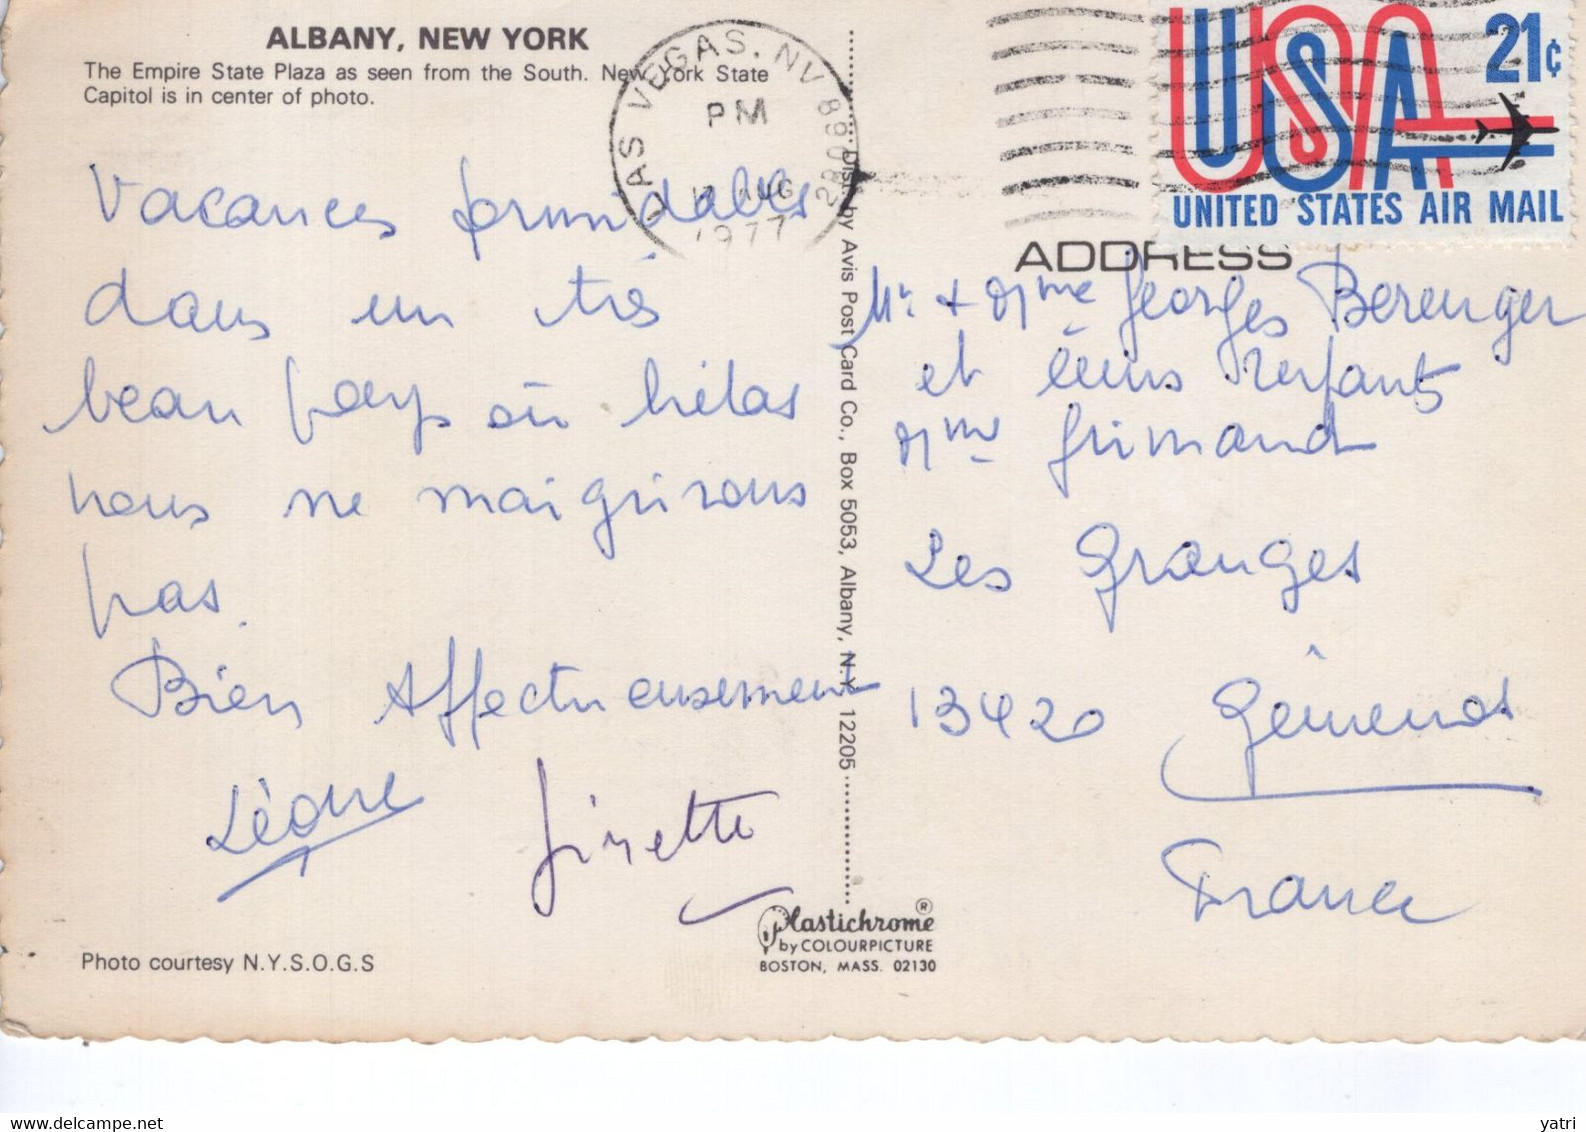 ALBANY, NEW YORK
The Empire State Plaza as seen from the South. New York State
Capitol is in center of photo.
LAS VEGAS. NV 890
PM
AUG
1977
USA 21¢
UNITED STATES AIR MAIL
ADDRESS
Vacances formidables
dans un très
beau pays où hélas
nous ne maigrirons
pas.
Bien Affectueusement
Léone
Ginette
Mr + Mme Georges Berenger
et leurs enfants
Mme Grimand
Les Granges
13420 Gémenos
France
Dist. by Avis Post Card Co., Box 5053, Albany, N.Y. 12205
Plastichrome®
by COLOURPICTURE
BOSTON, MASS. 02130
Photo courtesy N.Y.S.O.G.S
yatri